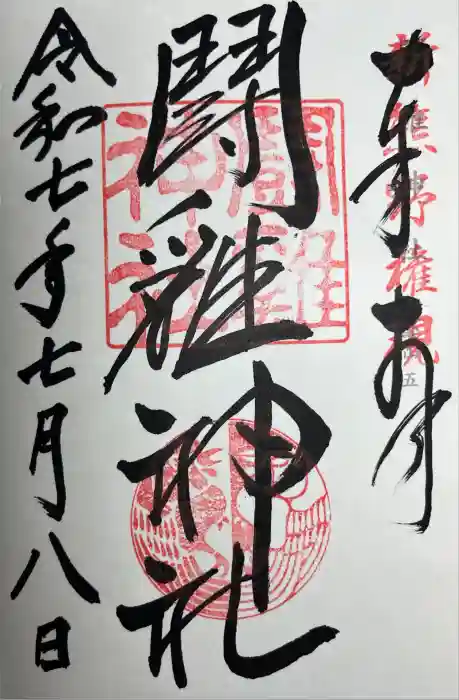 奉拝
新熊野權現
五
鬪雞神社
鬪雞神社
令和七年七月八日